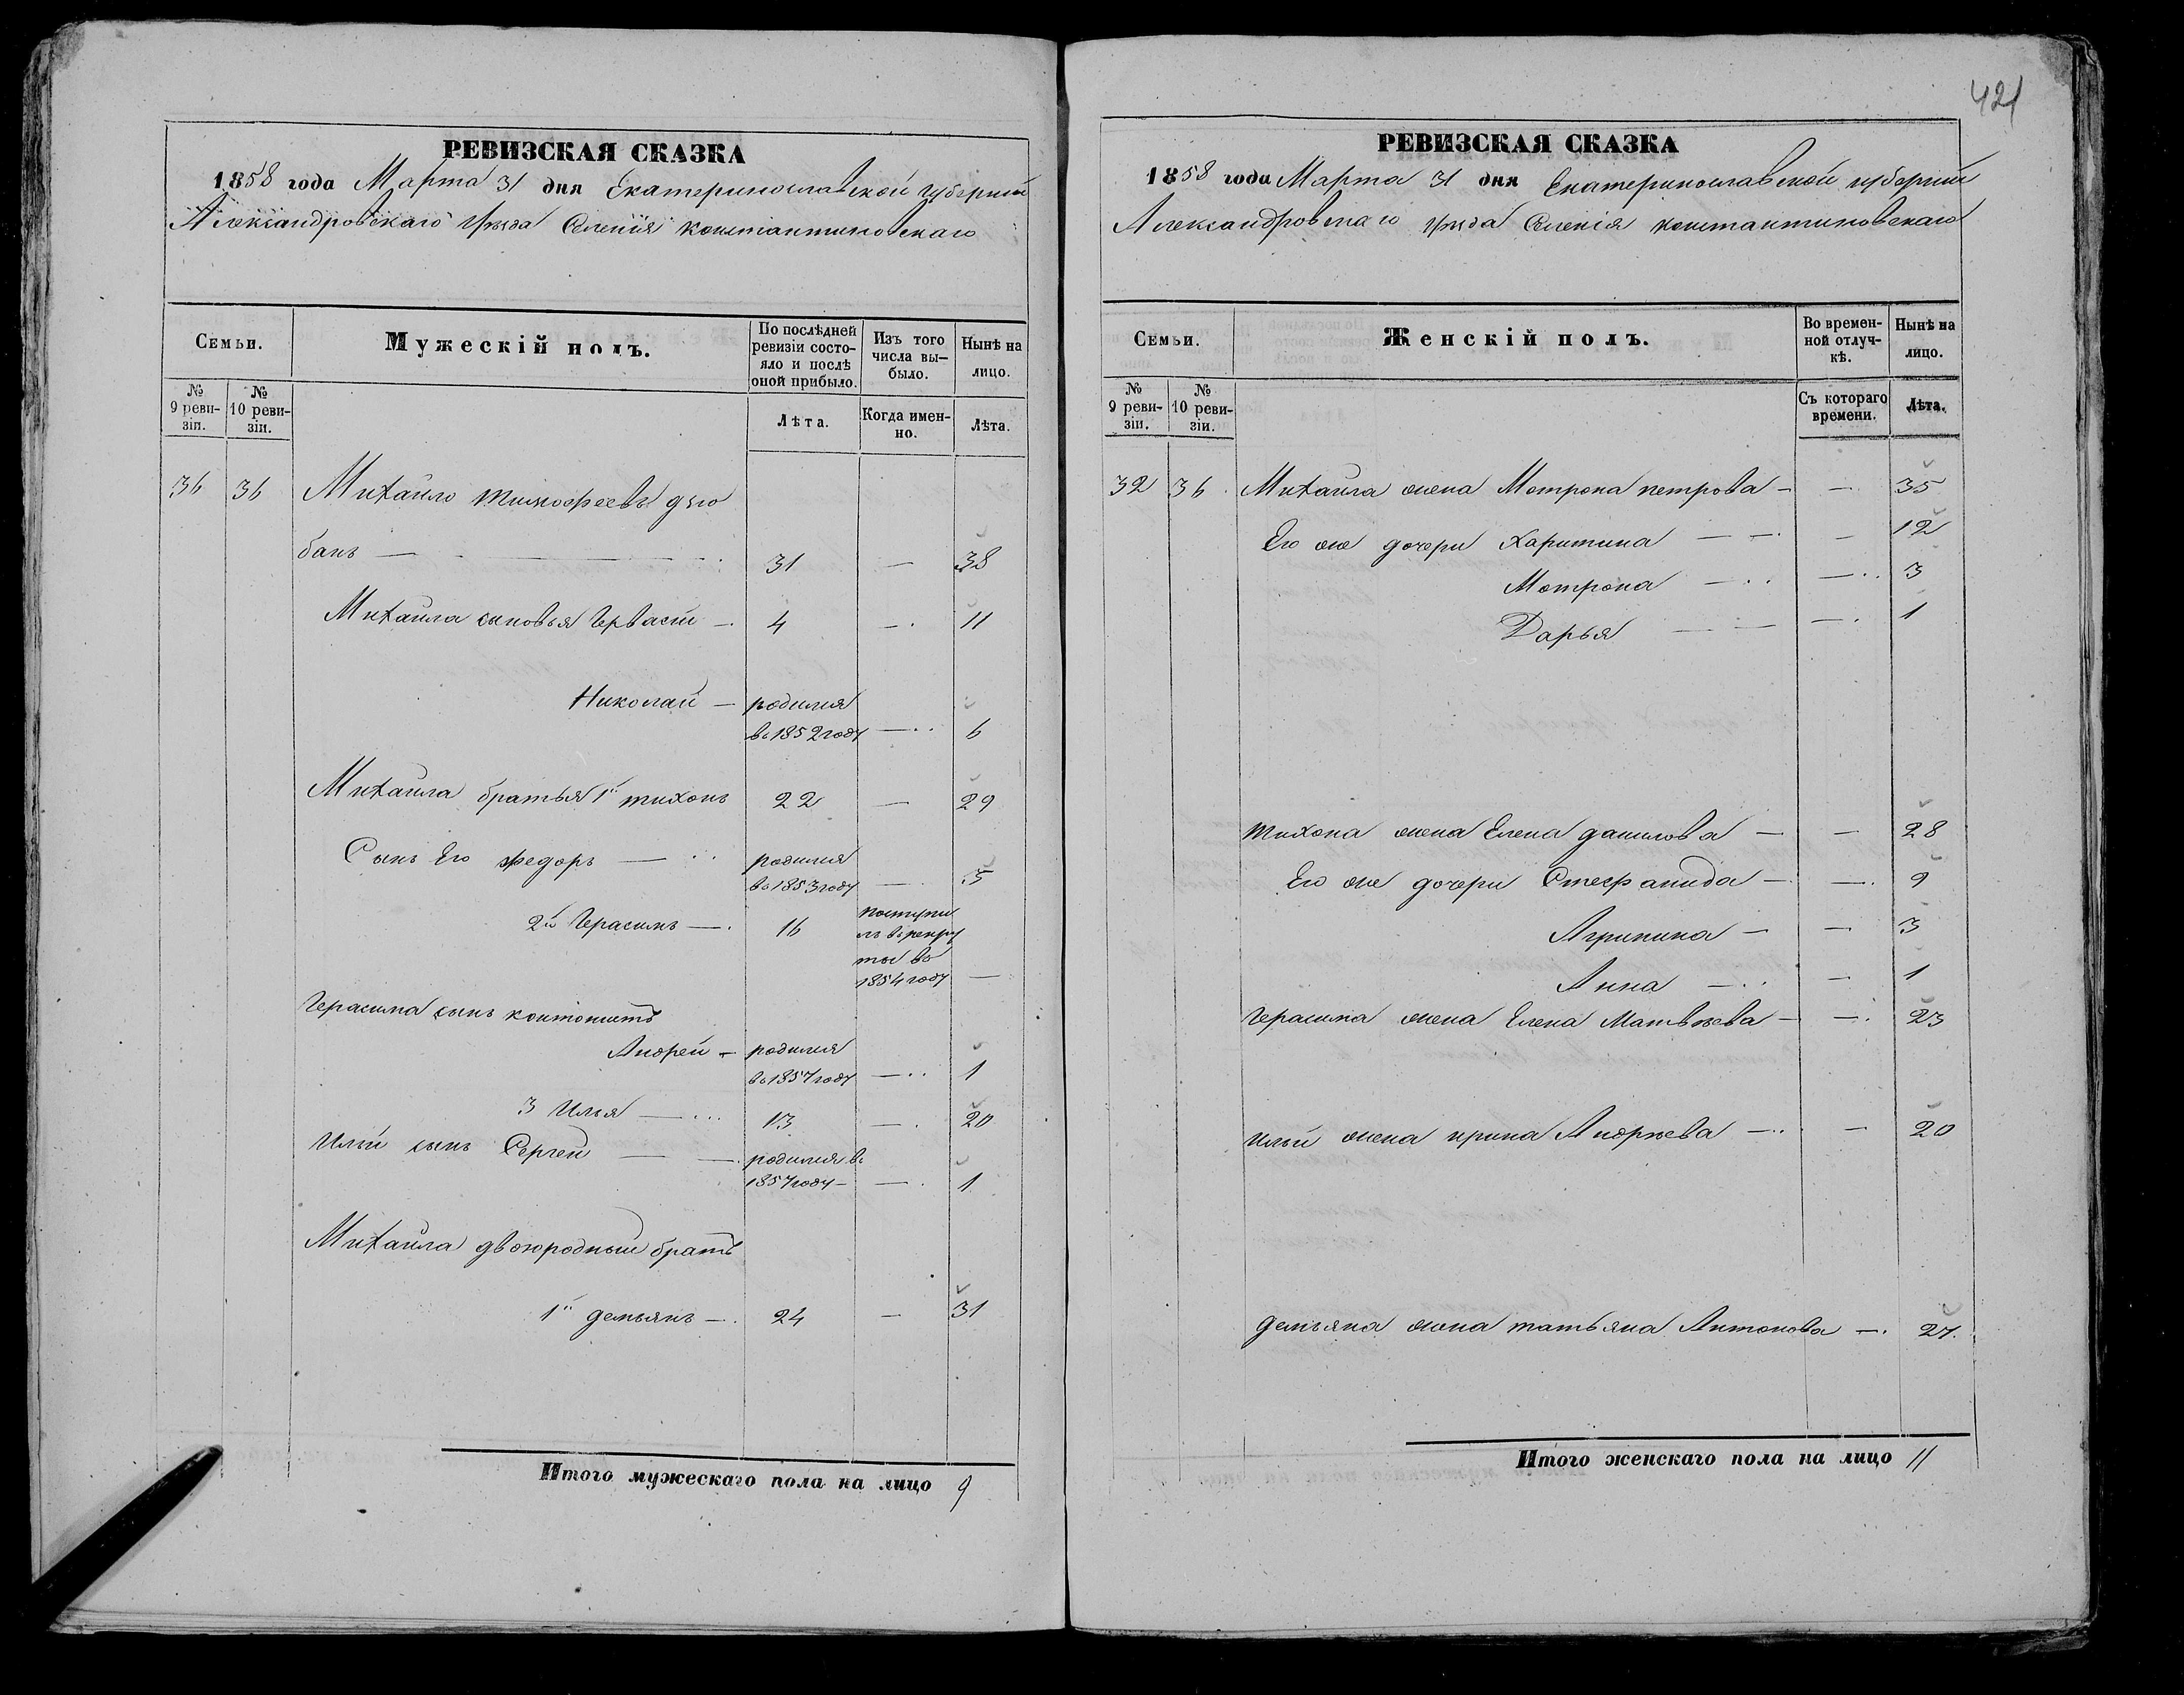 РЕВИЗСКАЯ СКАЗКА
1858 года Марта 31 дня Екатеринославской губернии
Александровскаго Уѣзда Селенія константиновскаго
Семьи.
Мужескій полъ.
По послѣдней ревизіи состояло и послѣ оной прибыло.
Изъ того числа выбыло.
Нынѣ на лицо.
№ 9 ревизіи.
№ 10 ревизіи.
Лѣта.
Когда именно.
Лѣта.
36 36 Михайло тимофеевъ дзю
банъ — 31 — 38
Михайла сыновья Герваси — 4 — 11
Николай — родился
въ 1852 году — 6
Михайла братья 1й тихонъ 22 — 29
Сынъ Его федоръ — родился
въ 1853 году — 5
2й Герасимъ — 16 поступи
лъ въ рекру
ты въ
1854 году —
Герасима сынъ контонистъ
Андрей — родился
въ 1857 году — 1
3 Илья — 13 — 20
Ильи сынъ Сергей — родился въ
1857 году — — 1
Михайла двоюродный братъ
1й демьянъ — 24 — 31
Итого мужескаго пола на лицо 9
421
РЕВИЗСКАЯ СКАЗКА
1858 года Марта 31 дня Екатеринославской губернии
Александровскаго Уѣзда Селенія константиновскаго
Семьи.
Женскій полъ.
Во временной отлучкѣ.
Нынѣ на лицо.
№ 9 ревизіи.
№ 10 ревизіи.
Съ котораго времени.
Лѣта.
32 36 Михайла жена Мотрона петрова — — 35
Его же дочери Харитина — — 12
Мотрона — — 3
Дарья — — 1
тихона жена Елена данилова — — 28
Его же дочери Стефанида — — 9
Агрипина — — 3
Анна — — 1
Герасима жена Елена Матвѣева — — 23
Ильи жена ирина Андрѣева — — 20
демьяна жена татьяна Антонова — 27
Итого женскаго пола на лицо 11